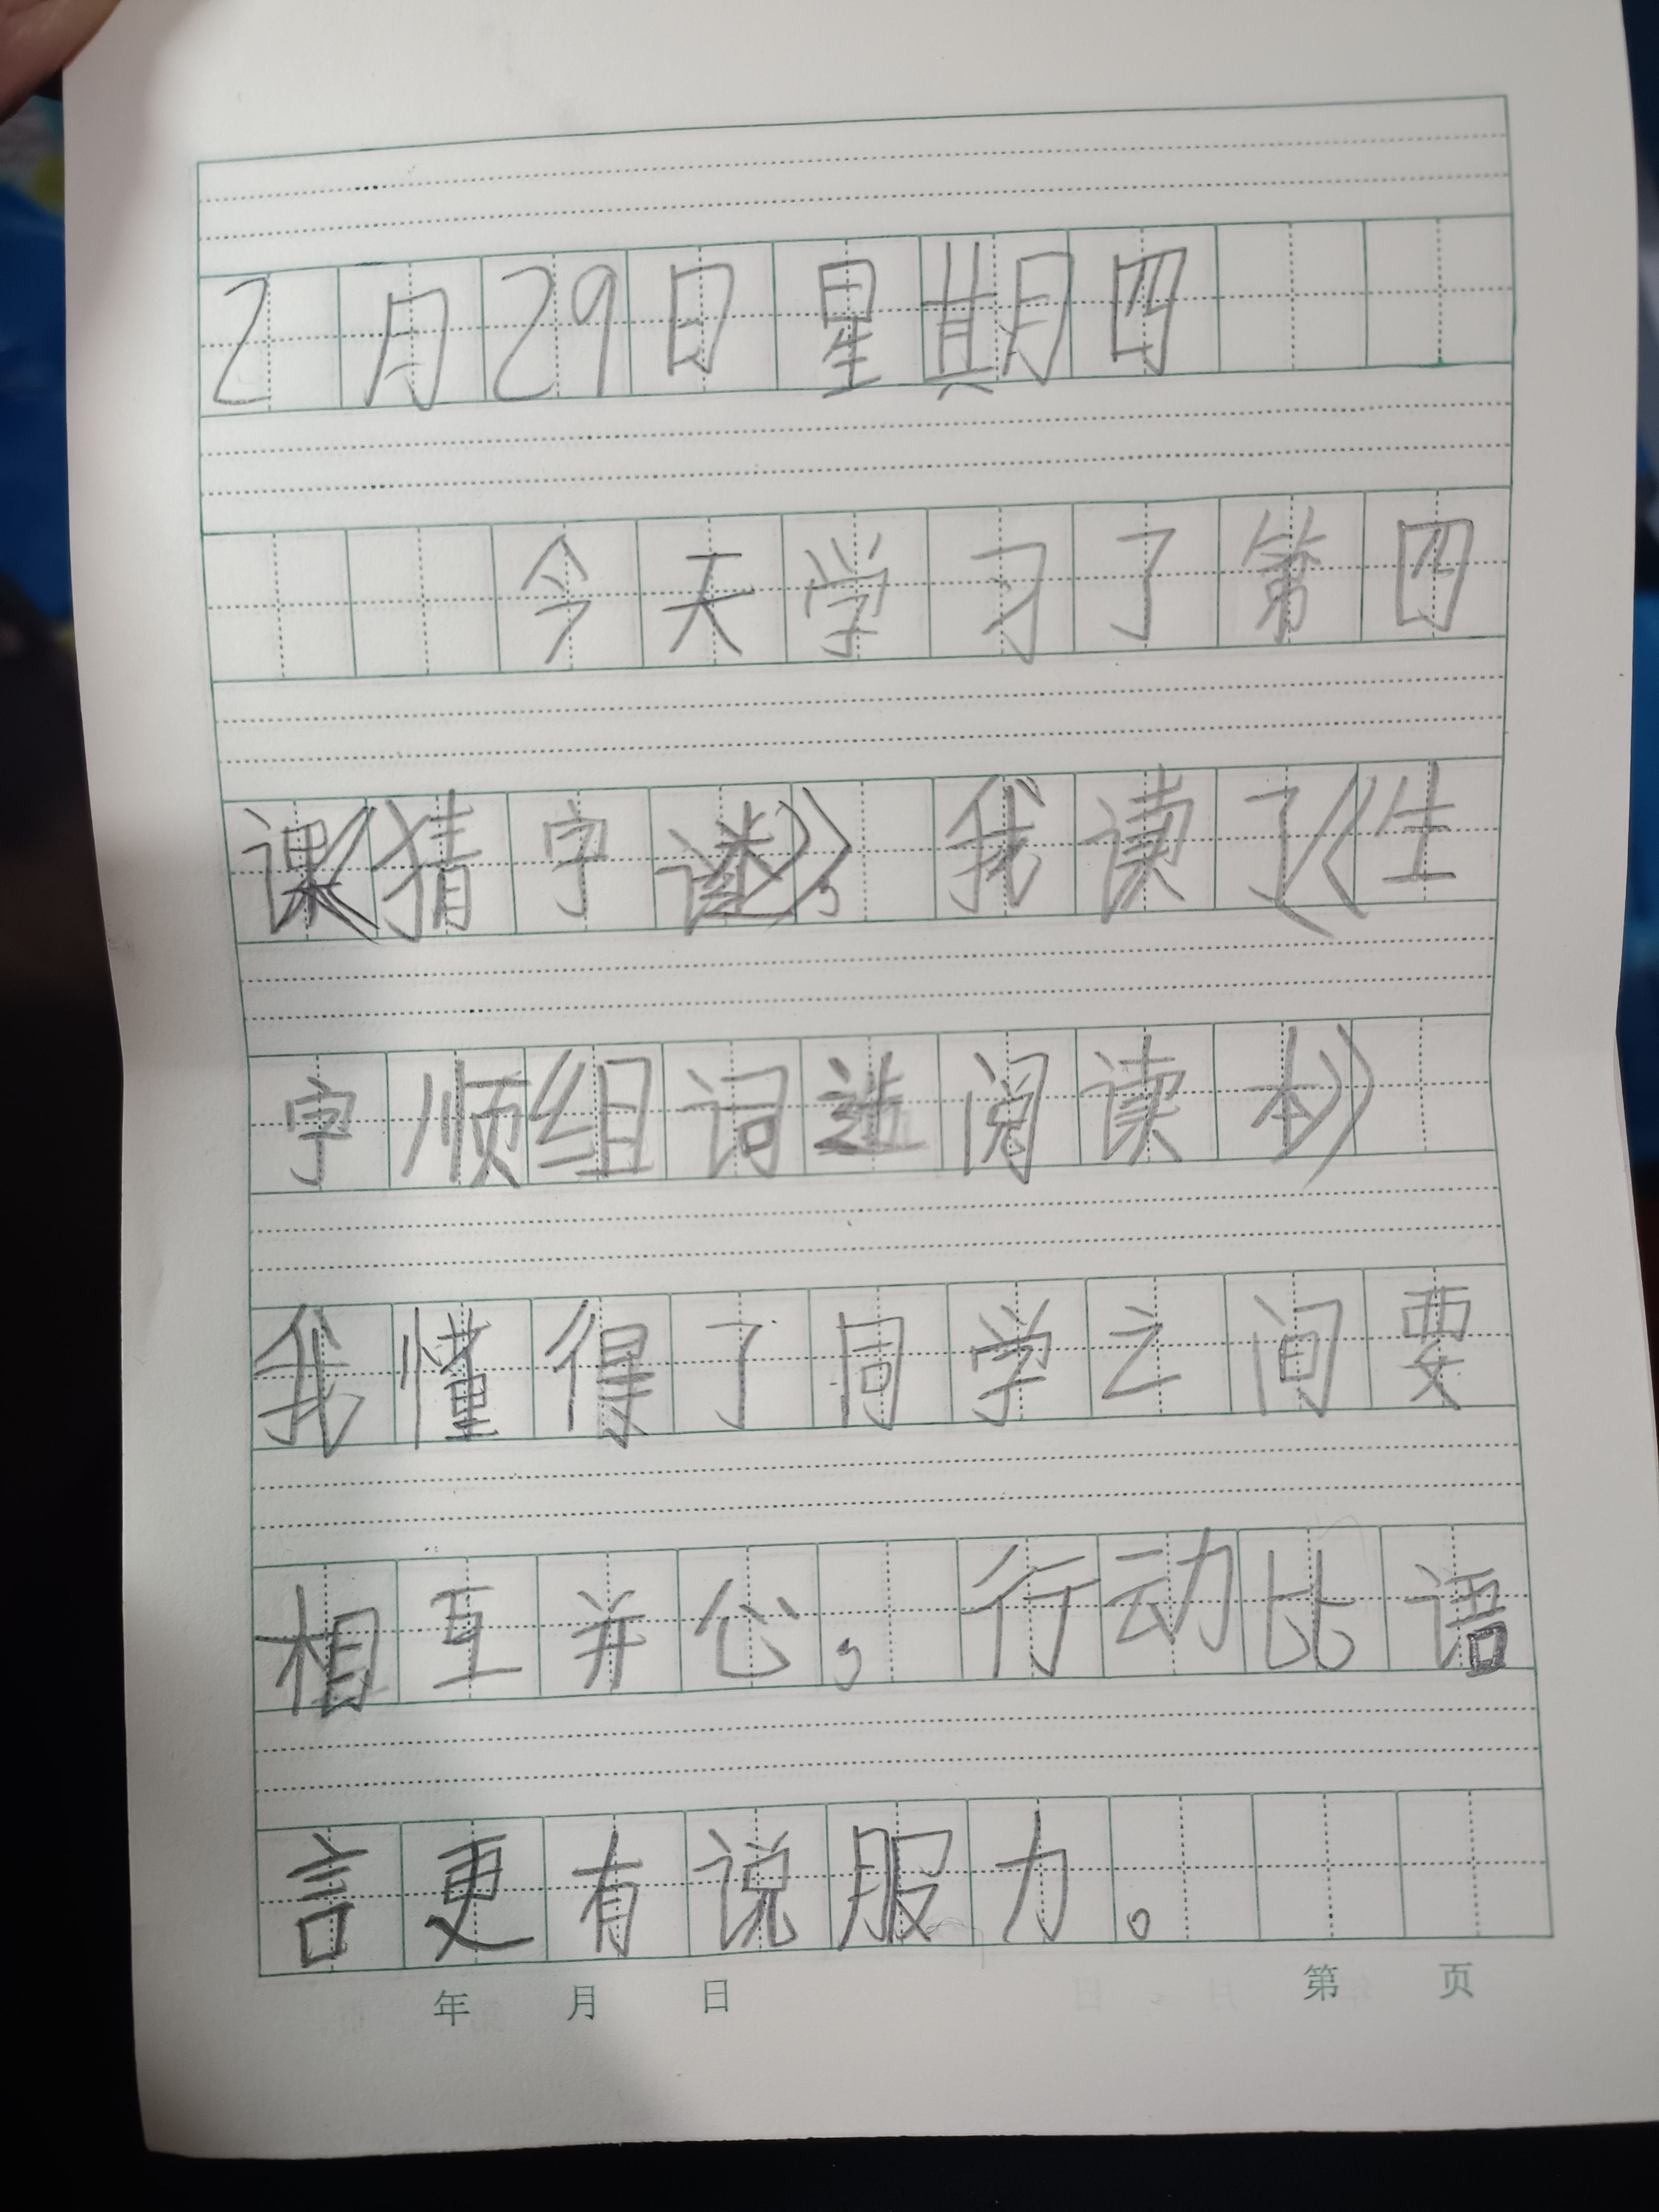 2月29日星期四
今天学习了第四
课《猜字谜》，我读了《生
字顺组词造阅读本》
我懂得了同学之间要
相互并心，行动比语
言更有说服力。
年 月 日 第 页